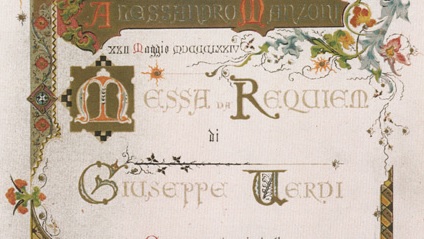 Alessandro Manzoni
XXII Maggio MDCCCLXXIV
Messa da Requiem
di
Giuseppe Verdi